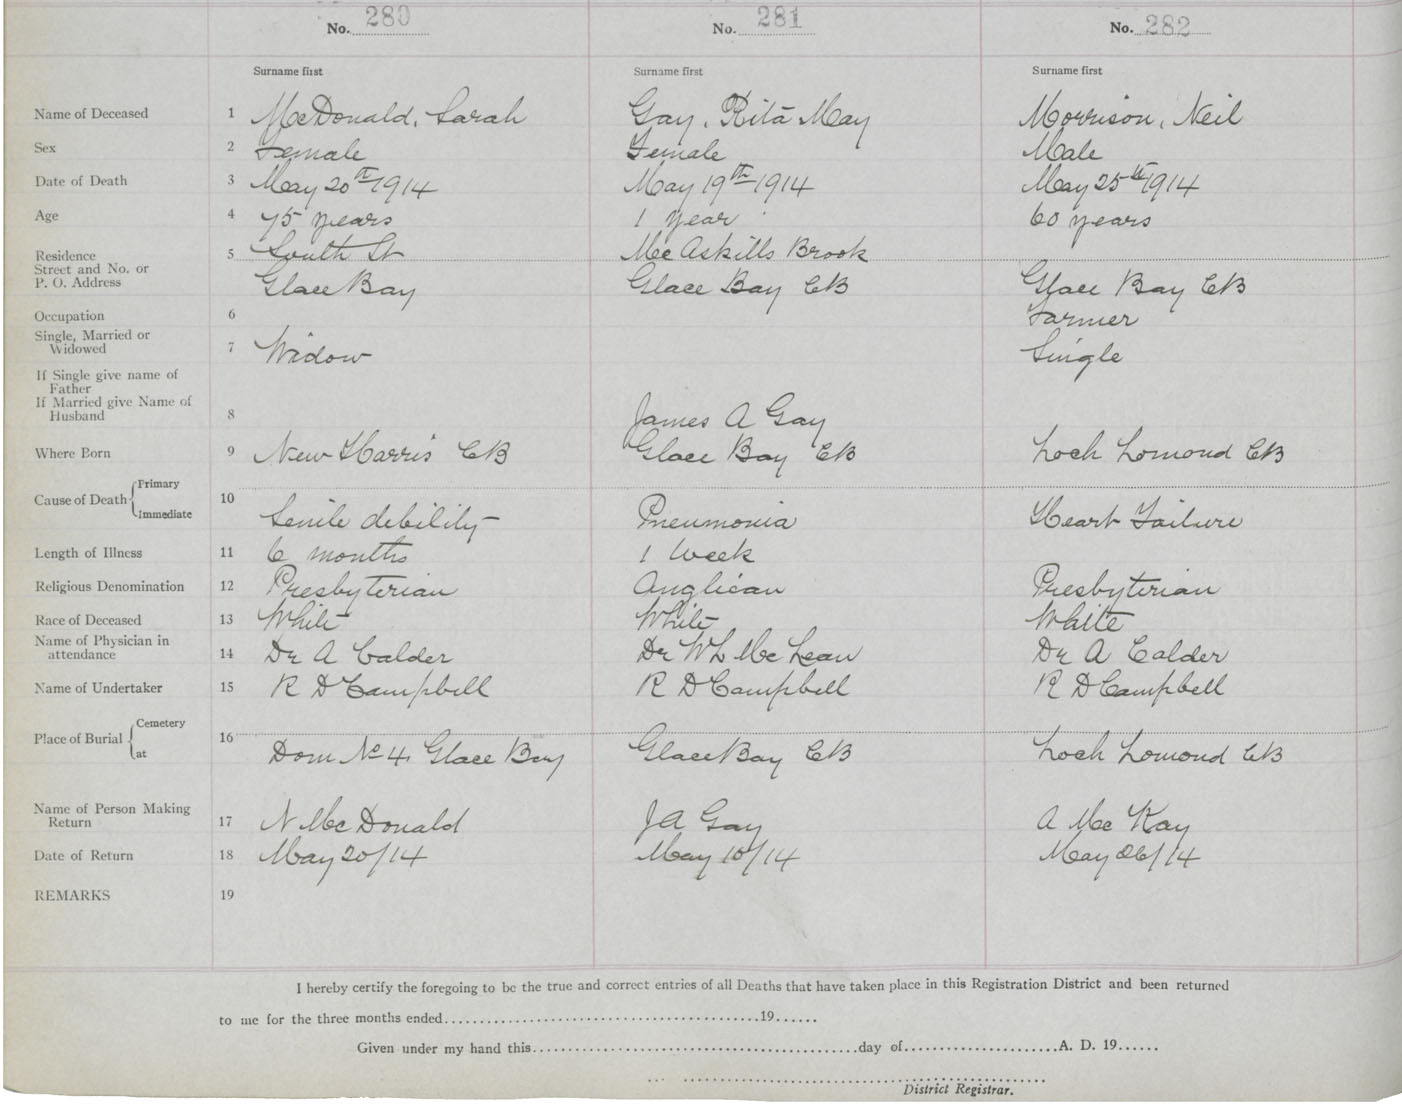 No. 280 No. 281 No. 282
Surname first Surname first Surname first
Name of Deceased 1 McDonald, Sarah Gay, Rita May Morrison, Neil
Sex 2 Female Female Male
Date of Death 3 May 20th 1914 May 19th 1914 May 25th 1914
Age 4 75 years 1 year 60 years
Residence 5 South St McAskills Brook
Street and No. or
P. O. Address Glace Bay Glace Bay CB Glace Bay CB
Occupation 6 Farmer
Single, Married or
Widowed 7 Widow Single
If Single give name of
Father
If Married give Name of
Husband 8 James A Gay
Where Born 9 New Harris CB Glace Bay CB Loch Lomond CB
Cause of Death Primary 10
Immediate Senile debility Pneumonia Heart Failure
Length of Illness 11 6 months 1 Week
Religious Denomination 12 Presbyterian Anglican Presbyterian
Race of Deceased 13 White White White
Name of Physician in
attendance 14 Dr A Calder Dr WL McLean Dr A Calder
Name of Undertaker 15 R D Campbell R D Campbell R D Campbell
Place of Burial Cemetery 16
at Dom No 4 Glace Bay Glace Bay CB Loch Lomond CB
Name of Person Making
Return 17 N McDonald J A Gay A McKay
Date of Return 18 May 20/14 May 10/14 May 26/14
REMARKS 19
I hereby certify the foregoing to be the true and correct entries of all Deaths that have taken place in this Registration District and been returned
to me for the three months ended 19
Given under my hand this day of A. D. 19
District Registrar.